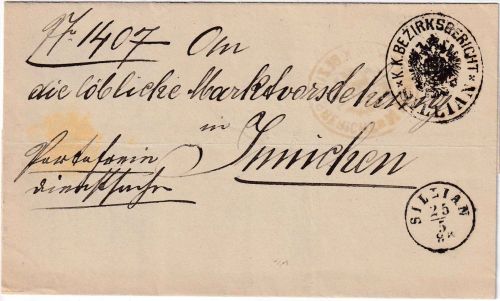 Nr. 1407 An
die löbliche Marktvorstehung
in
Innichen
Portofreie
Dienstsache
K.K. BEZIRKSGERICHT SILLIAN
SILLIAN
25
5